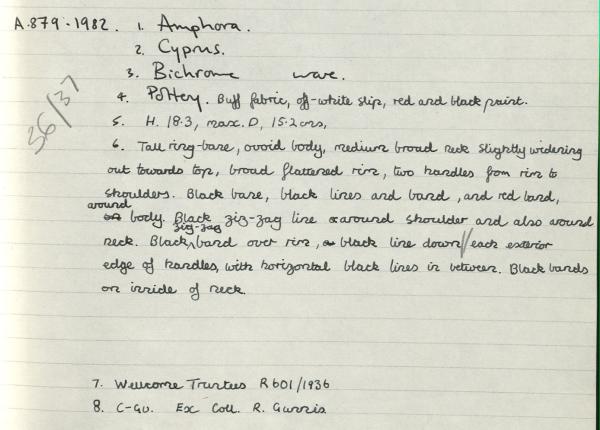 A.879-1982. 1. Amphora.
2. Cyprus.
3. Bichrome ware.
4. Pottery. Buff fabric, off-white slip, red and black paint.
5. H. 18.3, max. D, 15.2 cms,
6. Tall ring-base, ovoid body, medium broad neck slightly widening
out towards top, broad flattened rim, two handles from rim to
shoulders. Black base, black lines and band, and red band,
around body. Black zig-zag line around shoulder and also around
neck. Black zig-zag band over rim, black line down each exterior
edge of handles, with horizontal black lines in between. Black bands
on inside of neck.
36/37
7. Wellcome Trustees R601/1936
8. C-Gu. Ex Coll. R.